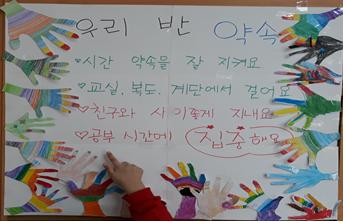 우리 반 약속
시간 약속을 잘 지켜요
교실, 복도, 계단에서 걸어요
친구와 사이좋게 지내요
공부 시간에 집중해요